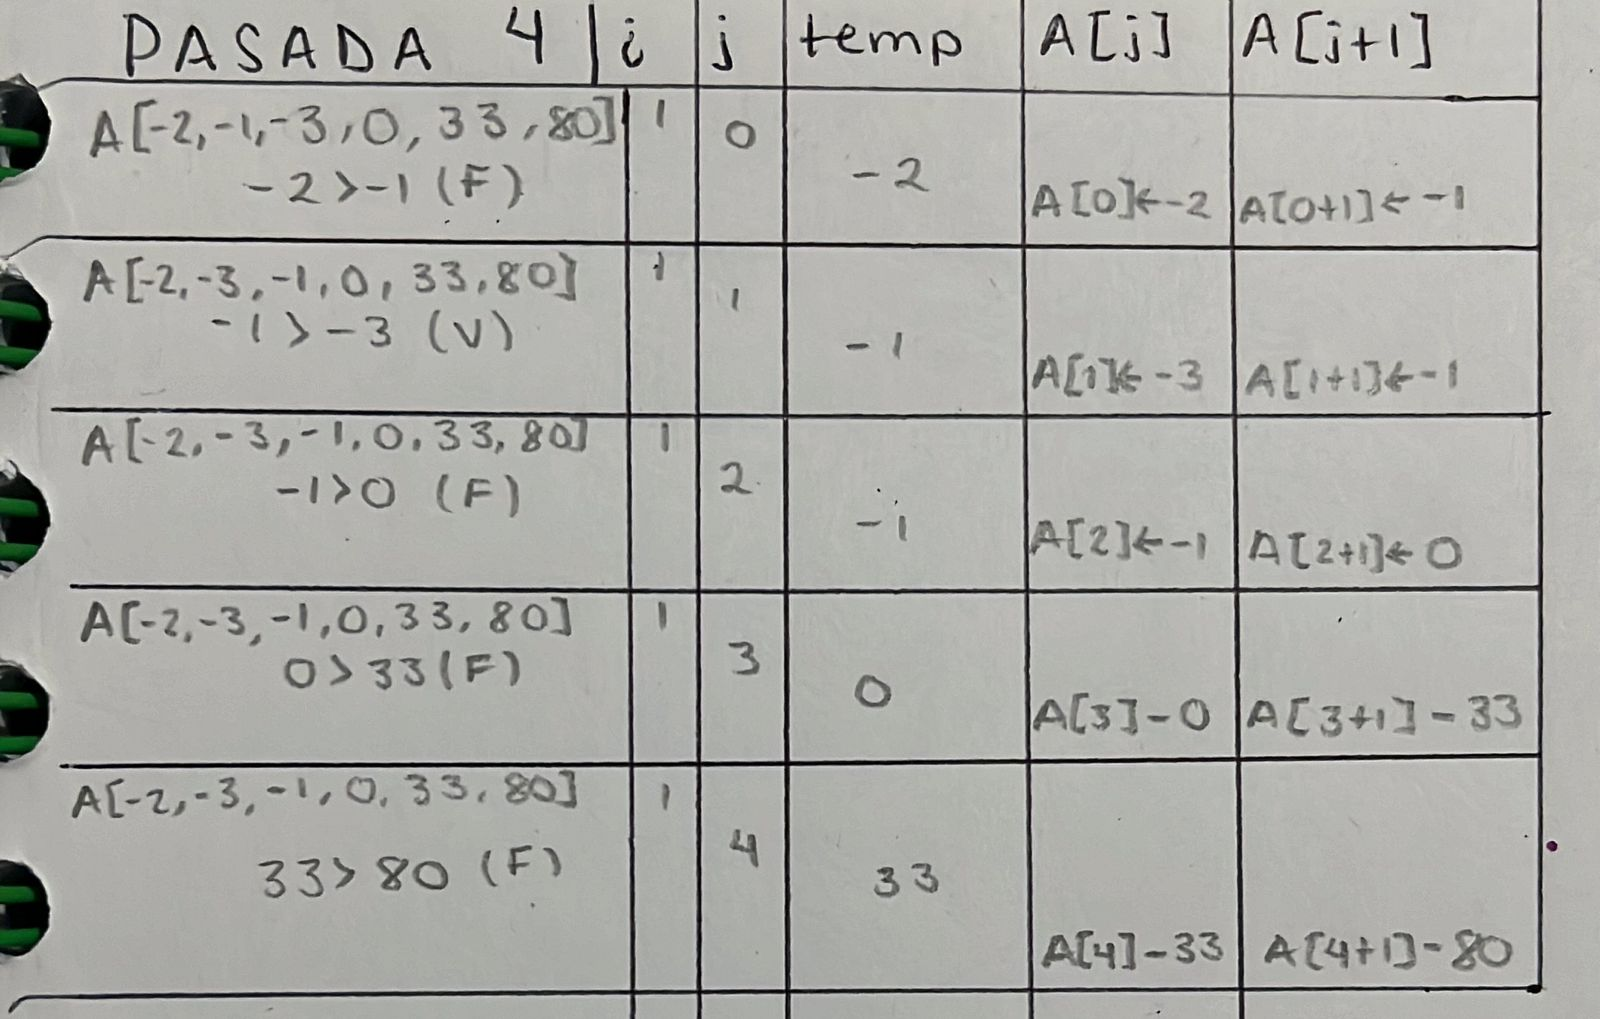 PASADA 4 | i j temp A[j] A[j+1]
A[-2,-1,-3,0,33,80] 1 0
-2>-1 (F) -2 A[0]←-2 A[0+1]←-1
A[-2,-3,-1,0,33,80] 1 1
-1>-3 (V) -1 A[1]←-3 A[1+1]←-1
A[-2,-3,-1,0,33,80] 1 2
-1>0 (F) -1 A[2]←-1 A[2+1]←0
A[-2,-3,-1,0,33,80] 1 3
0>33(F) 0 A[3]-0 A[3+1]-33
A[-2,-3,-1,0,33,80] 1 4
33>80 (F) 33 A[4]-33 A[4+1]-80